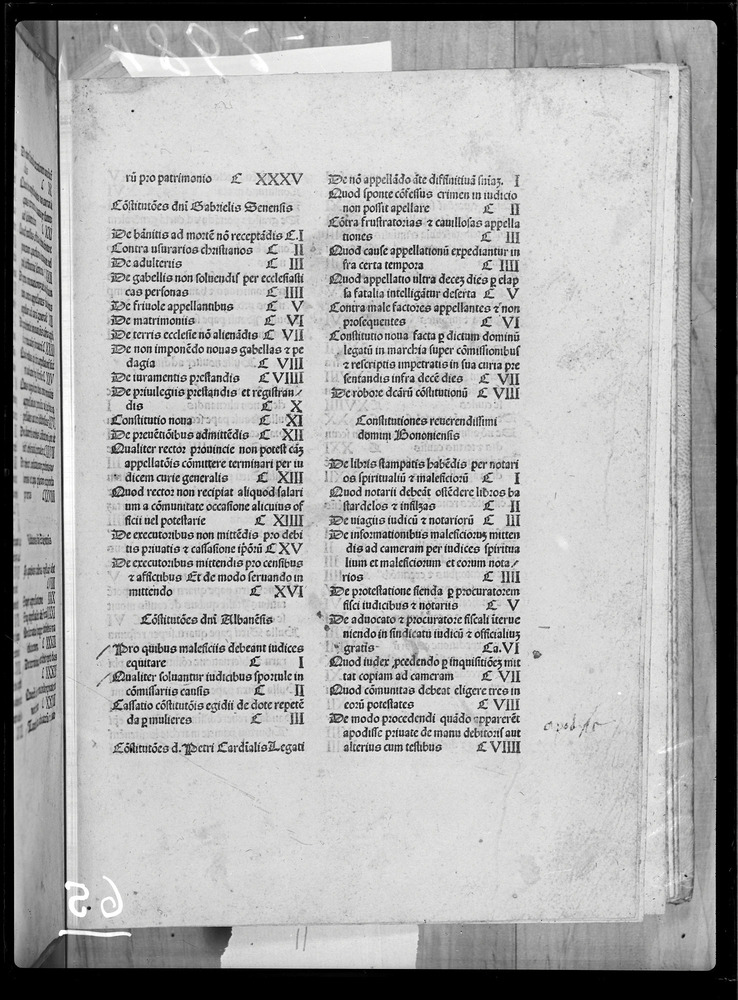 rũ pro patrimonio C XXXV
Cõstitutões dñi Gabrielis Senensis
De bãnitis ad mortẽ nõ receptãdis C.I
Contra usurarios christianos C II
De adulteriis C III
De gabellis non soluendis per ecclesiasti
cas personas C IIII
De friuole appellantibus C V
De matrimoniis C VI
De terris ecclesie nõ alienãdis C VII
De non imponẽdo nouas gabellas ⁊ pe
dagia C VIII
De iuramentis prestandis C VIIII
De priuilegiis prestandis et registran/
dis C X
Constitutio noua C XI
De preuẽtiõibus admittẽdis C XII
Qualiter rector prouincie non potest cãꝫ
appellatõis cõmittere terminari per iu
dicem curie generalis C XIII
Quod rector non recipiat aliquod salari
um a cõmunitate occasione alicuius of
ficii uel potestarie C XIIII
De executoribus non mittẽdis pro debi
tis priuatis ⁊ cassatione ipõrũ C XV
De executoribus mittendis pro censibus
⁊ afflictibus Et de modo seruando in
mittendo C XVI
Cõstitutões dñi Albanẽsis
Pro quibus maleficiis debeant iudices
equitare C I
Qualiter soluantur iudicibus sportule in
cõmissariis causis C II
Cassatio cõstitutõis egidii de dote repetẽ
da ꝑ mulieres C III
Cõstitutões d. Petri Cardĩalis Legati
De nõ appellãdo ãte diffinitiuã sñiaꝫ. I
Quod sponte cõfessus crimen in iudicio
non possit apellare C II
Cõtra frustratorias ⁊ cauillosas appella
tiones C III
Quod cause appellationũ expediantur in
fra certa tempora C IIII
Quod appellatio ultra deceꝫ dies ꝑ elap
sa fatalia intelligãtur deserta C V
Contra male factores appellantes ⁊ non
prosequentes C VI
Constitutio noua facta ꝑ dictum dominũ
legatũ in marchia super cõmissionibus
⁊ rescriptis impetratis in sua curia pre
sentandis infra decẽ dies C VII
De robore dcãrũ cõstitutionũ C VIII
Constitutiones reuerendissimi
domini Bononiensis
De libris stampatis habẽdis per notari
os spiritualiũ ⁊ maleficiorũ C I
Quod notarii debeãt ostẽdere libros ba
stardelos ⁊ infilzas C II
De uiagiis iudicũ ⁊ notariorũ C III
De informationibus maleficioruꝫ mitten
dis ad cameram per iudices spiritua
lium et maleficiorum et eorum nota/
rios C IIII
De protestatione fienda ꝑ procuratorem
fisci iudicibus ⁊ notariis C V
De aduocato ⁊ procuratore fiscali iterue
niendo in sindicatu iudicũ ⁊ officialiuꝫ
gratis Ca.VI
Quod iudex ꝓcedendo ꝑ inquisitiõeꝫ mit
tat copiam ad cameram C VII
Quod cõmunitas debeat eligere tres in
eorũ potestates C VIII
De modo procedendi quãdo apparerẽt
apodisse priuate de manu debitoris aut
alterius cum testibus C VIIII
65
11